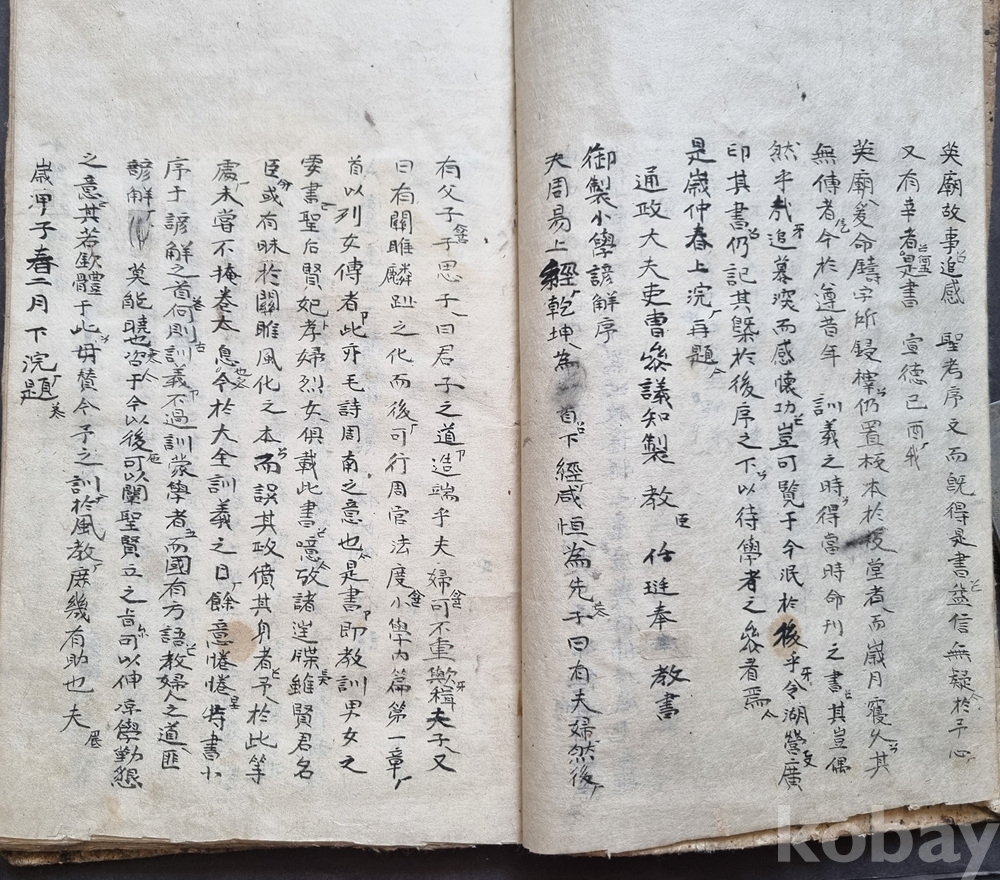 英廟故事追感 聖考序文而旣得是書益信無疑於予心
又有幸者是書 宣德己酉我
英廟爰命鑄字所鋟梓仍置板本於後堂者而歲月寢久其
無傳者今於遵昔年 訓義之時得當時命刊之書其豈偶
然乎哉追慕深而感懷切豈可覽于今泯於後乎令湖營廣
印其書仍記其槩於後序之下以待學者之參看焉
是歲仲春上浣再題
通政大夫吏曹參議知製 教臣 任珽奉 教書
御製小學諺解序
夫周易上經乾坤為 首下經咸恒為先子曰有夫婦然後
有父子子思子曰君子之道造端乎夫婦可不重歟楫夫子又
曰有關雎麟趾之化而後可行周官法度小學內篇第一章
首以列女傳者此亦毛詩周南之意也是書即教訓男女之
要書聖后賢妃孝婦烈女俱載此書噫攷諸迬牒雖賢君名
臣或有昧於關雎風化之本而誤其政僨其身者予於此等
處未嘗不掩卷太息今於大全訓義之日餘意惓惓特書小
序于諺解之首何則訓義不過訓蒙學者而國有方語教婦人之道匪
諺解莫能曉也咨于今以後可以闡聖賢立之旨可以伸凉學勤懇
之意其若歛體于此毋贊今予之訓於風教庶幾有助也夫
歲淠子春二月下浣題
kobay